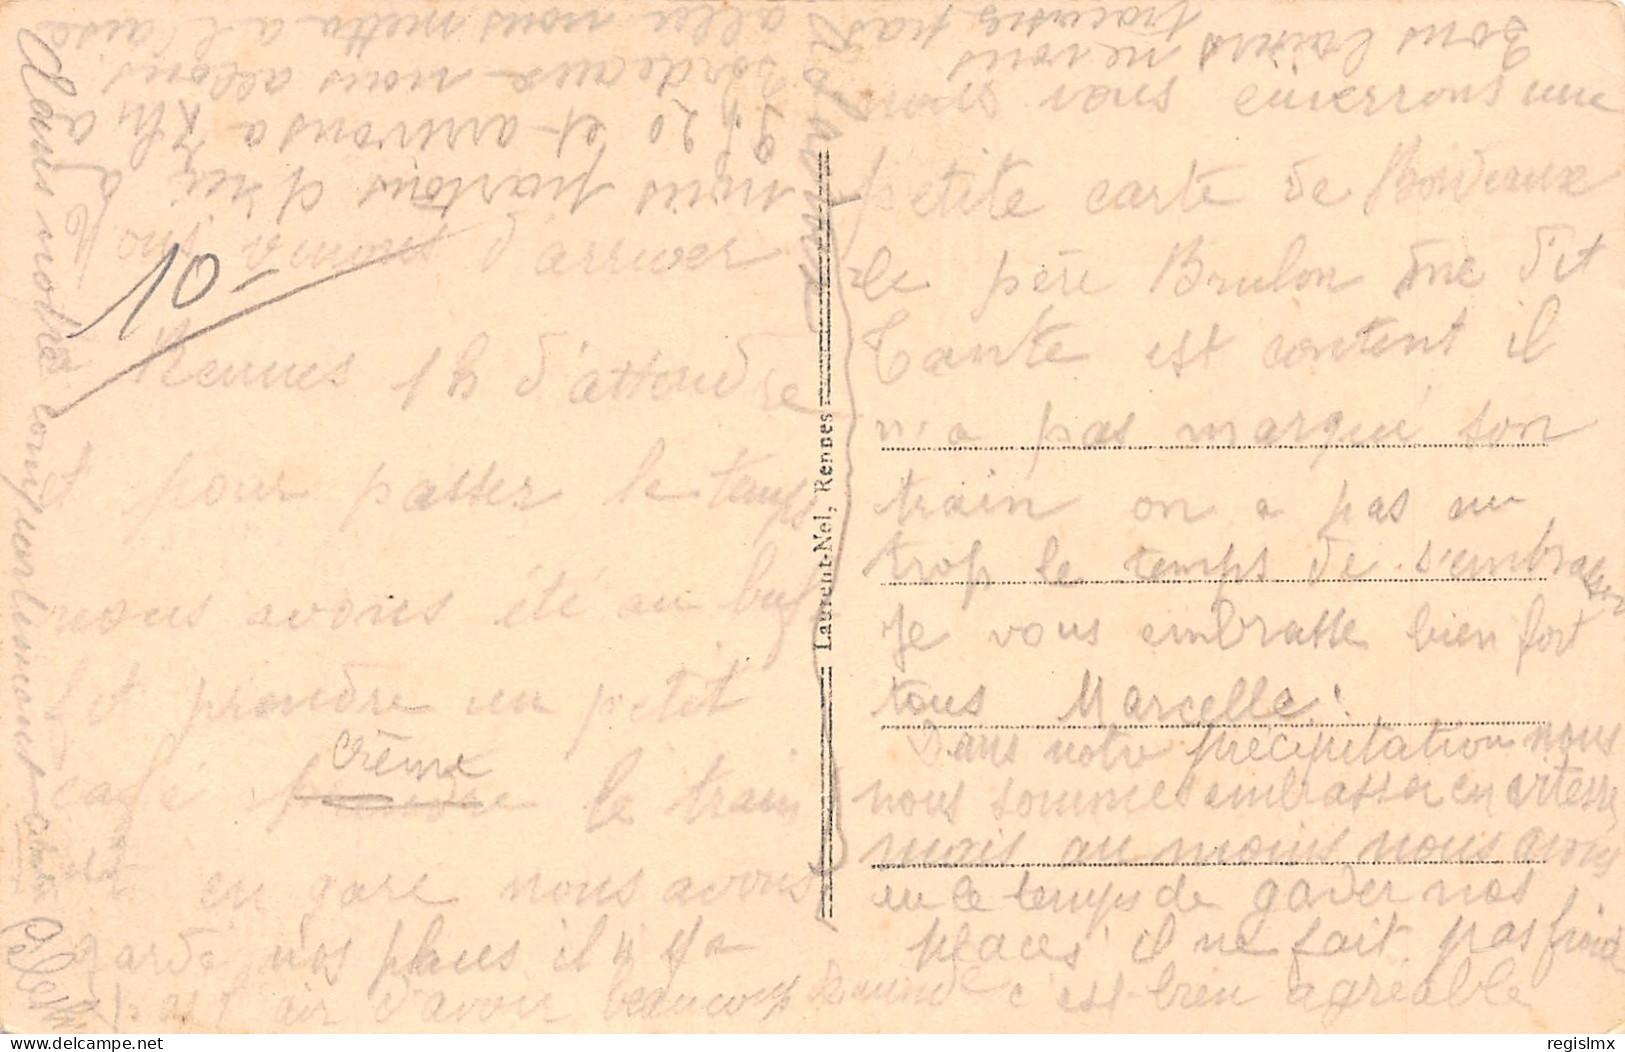 10-
nous venons d'arriver
Rennes 1h d'attendre
et pour passer le temps
nous avons été au buf
fet prendre un petit
café crème le train
en gare nous avons
gardé nos places il n'y a
pas l'air d'avoir beaucoup de monde
nous vous enverrons une
petite carte de Bordeaux
le père Brulon dne dit
Tante est content il
n'a pas marqué son
train on a pas eu
trop le temps de s'embrasser
Je vous embrasse bien fort
tous Marcelle.
Dans notre précipitation nous
nous sommes embrasser en vitesse
mais au moins nous avons
eu le temps de garder nos
places il ne fait pas froid
c'est bien agréable
nous partons d'ici à
9h20 et arrivons à 7h à
Bordeaux nous allons
nous mettre à l'aise
Dans notre compartiment
Bons baisers ne vous
tracassez pas
Laurent-Nel, Rennes
regislmx
© delcampe.net